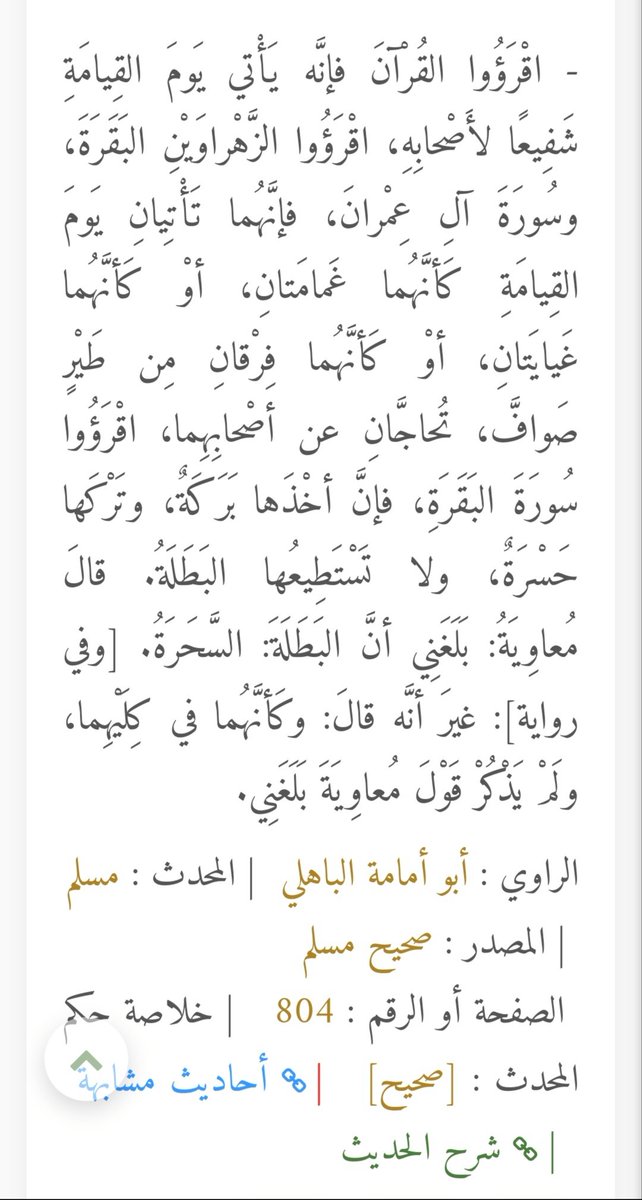 - اقْرَؤُوا القُرْآنَ فإنَّه يَأْتي يَومَ القِيامَةِ
شَفِيعًا لأَصْحابِهِ، اقْرَؤُوا الزَّهْراوَيْنِ البَقَرَةَ،
وسُورَةَ آلِ عِمْرانَ، فإنَّهُما تَأْتِيانِ يَومَ
القِيامَةِ كَأنَّهُما غَمامَتانِ، أوْ كَأنَّهُما
غَيايَتانِ، أوْ كَأنَّهُما فِرْقانِ مِن طَيْرٍ
صَوافَّ، تُحاجَّانِ عن أصْحابِهِما، اقْرَؤُوا
سُورَةَ البَقَرَةِ، فإنَّ أخْذَها بَرَكَةٌ، وتَرْكَها
حَسْرَةٌ، ولا تَسْتَطِيعُها البَطَلَةُ. قالَ
مُعاوِيَةُ: بَلَغَنِي أنَّ البَطَلَةَ: السَّحَرَةُ. [وفي
رواية]: غيرَ أنَّه قالَ: وكَأنَّهُما في كِلَيْهِما،
ولَمْ يَذْكُرْ قَوْلَ مُعاوِيَةَ بَلَغَنِي.
الراوي : أبو أمامة الباهلي | المحدث : مسلم
| المصدر : صحيح مسلم
الصفحة أو الرقم : 804 | خلاصة حكم
المحدث : [صحيح] | أحاديث مشابهة
| شرح الحديث